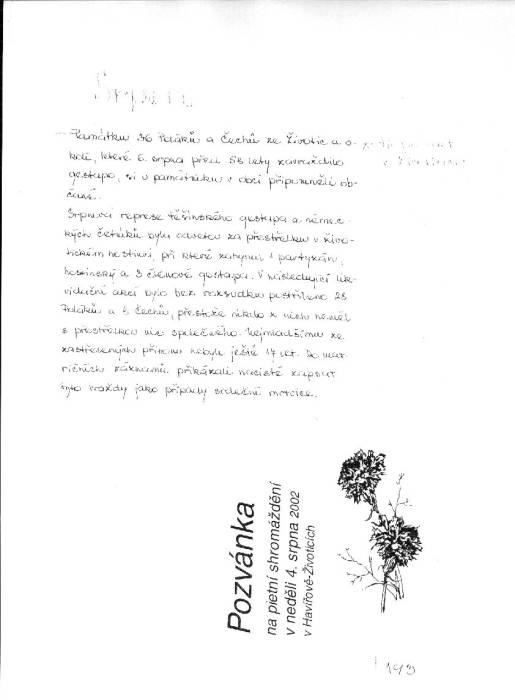 Srpen
Památku 36 Poláků a Čechů ze Životic a o-
kolí, které 6. srpna před 58 lety zavraždilo
gestapo, si u památníku v obci připomněli ob-
čané.
Srpnová represe těšínského gestapa a němec-
kých četníků byla odvetou za přestřelku v živo-
tickém hostinci, při které zahynuli 1 partyzán,
hostinský a 3 členové gestapa. V následující lik-
vidační akci bylo bez rozsudku postříleno 28
Poláků a 8 Čechů, přestože nikdo z nich neměl
s přestřelkou nic společného. Nejmladšímu ze
zastřelených přitom nebylo ještě 17 let. Do mat-
ričních záznamů přikázali nacisté zapsat
tyto vraždy jako případy srdeční mrtvice.
Pozvánka
na pietní shromáždění
v neděli 4. srpna 2002
v Havířově-Životicích
193